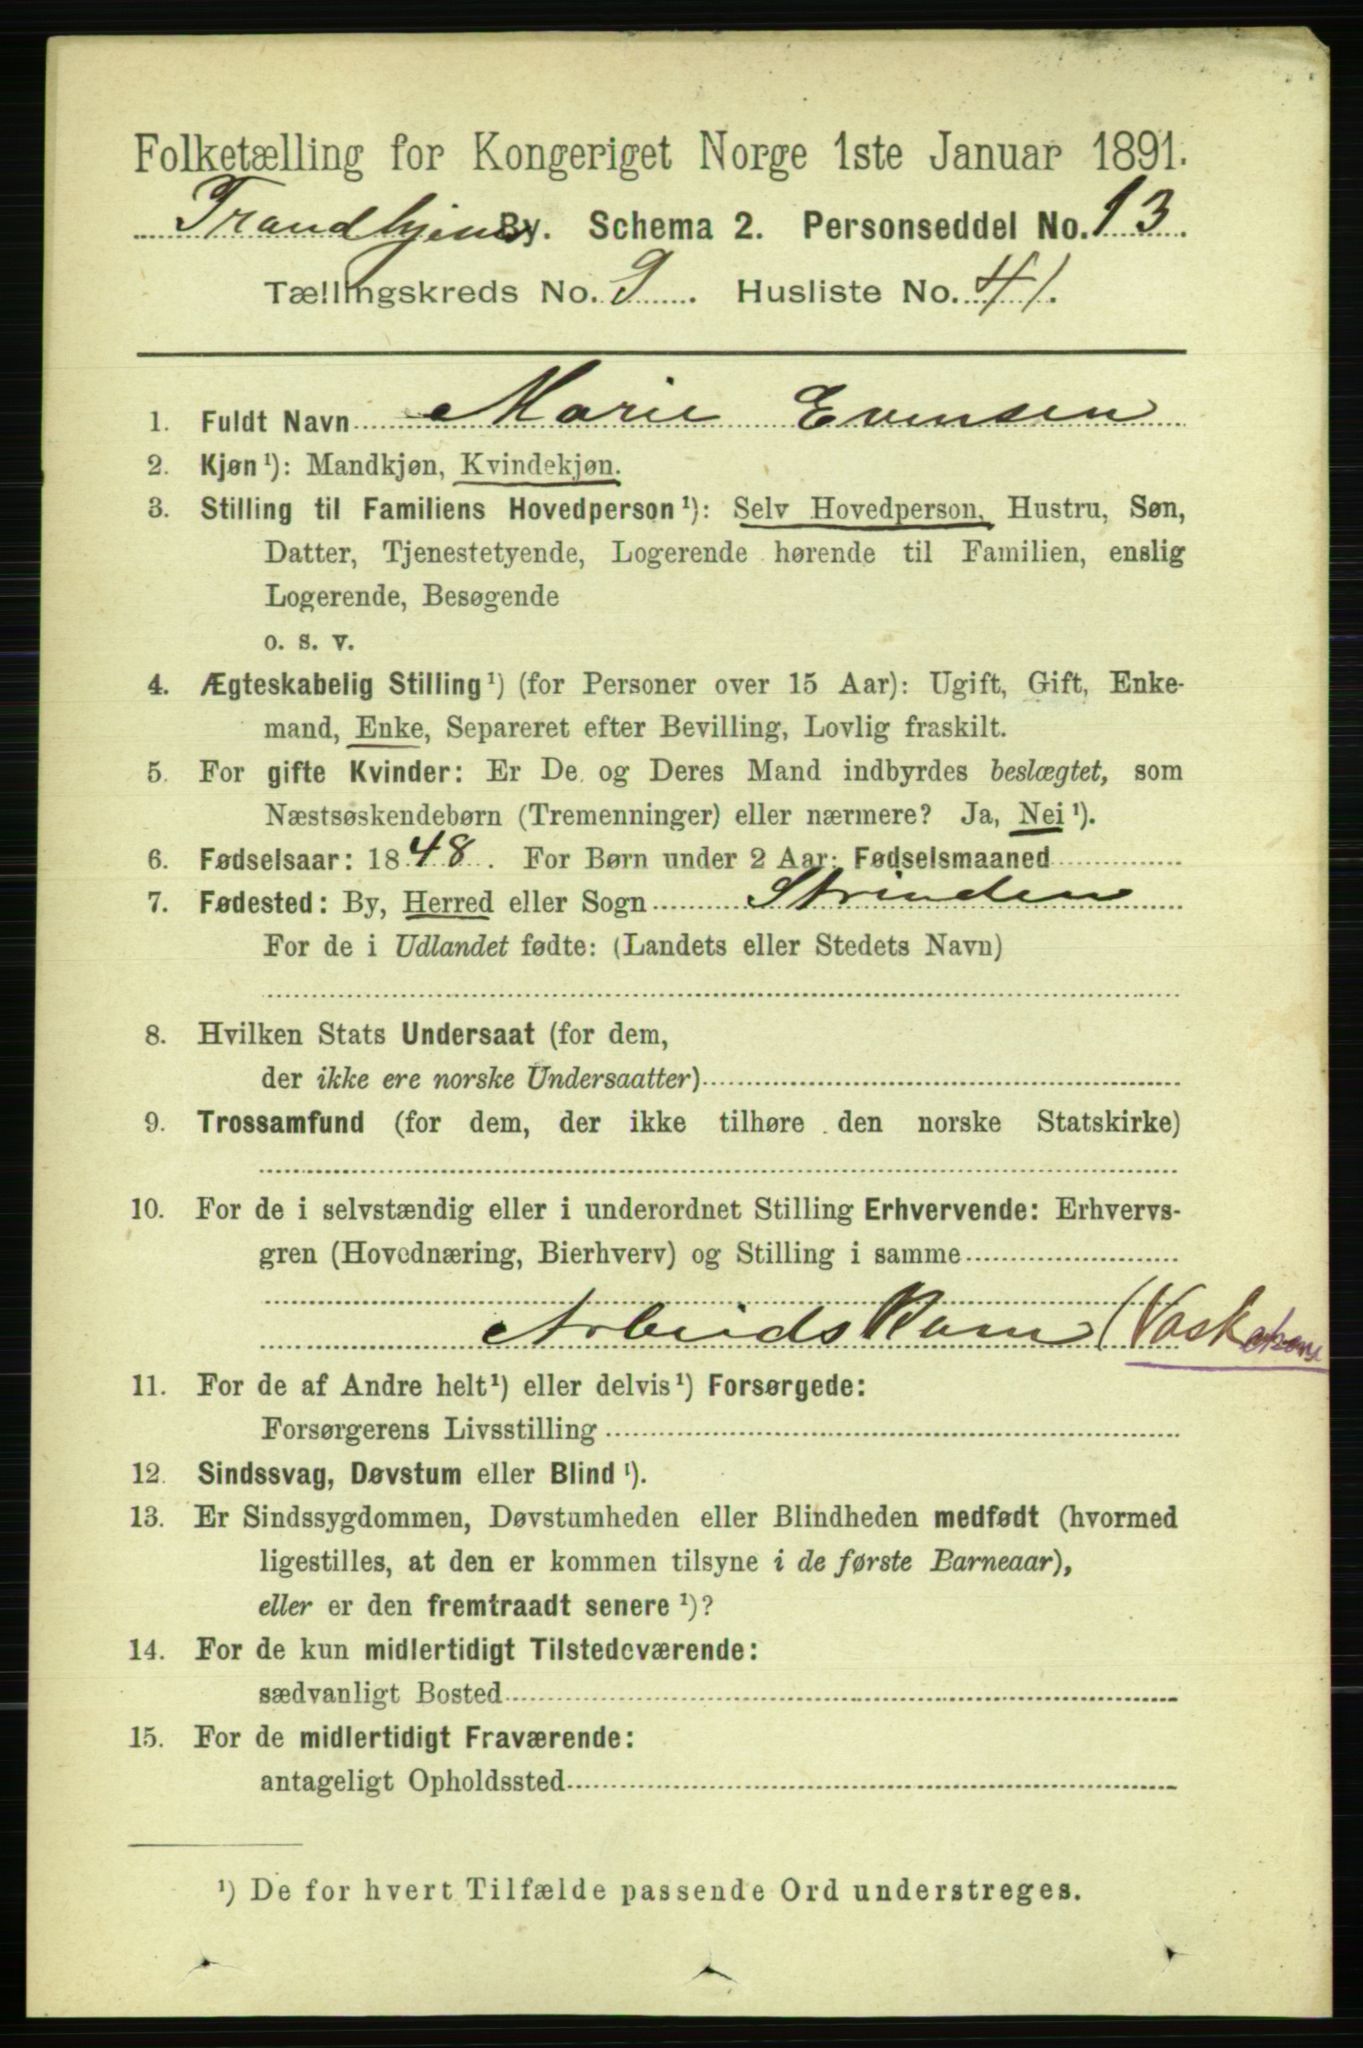 Folketælling for Kongeriget Norge 1ste Januar 1891.
Trondhjems By. Schema 2. Personseddel No. 13.
Tællingskreds No. 9. Husliste No. 41.
1. Fuldt Navn Marie Evensen
2. Kjøn¹): Mandkjøn, Kvindekjøn.
3. Stilling til Familiens Hovedperson¹): Selv Hovedperson, Hustru, Søn,
Datter, Tjenestetyende, Logerende hørende til Familien, enslig
Logerende, Besøgende
o. s. v.
4. Ægteskabelig Stilling¹) (for Personer over 15 Aar): Ugift, Gift, Enke-
mand, Enke, Separeret efter Bevilling, Lovlig fraskilt.
5. For gifte Kvinder: Er De og Deres Mand indbyrdes beslægtet, som
Næstsøskendebørn (Tremenninger) eller nærmere? Ja, Nei¹).
6. Fødselsaar: 1848. For Børn under 2 Aar: Fødselsmaaned
7. Fødested: By, Herred eller Sogn Strinden
For de i Udlandet fødte: (Landets eller Stedets Navn)
8. Hvilken Stats Undersaat (for dem,
der ikke ere norske Undersaatter)
9. Trossamfund (for dem, der ikke tilhøre den norske Statskirke)
10. For de i selvstændig eller i underordnet Stilling Erhvervende: Erhvervs-
gren (Hovednæring, Bierhverv) og Stilling i samme
Arbeids Kone (Vaskekone
11. For de af Andre helt¹) eller delvis¹) Forsørgede:
Forsørgerens Livsstilling
12. Sindssvag, Døvstum eller Blind¹).
13. Er Sindssygdommen, Døvstumheden eller Blindheden medfødt (hvormed
ligestilles, at den er kommen tilsyne i de første Barneaar),
eller er den fremtraadt senere¹)?
14. For de kun midlertidigt Tilstedeværende:
sædvanligt Bosted
15. For de midlertidigt Fraværende:
antageligt Opholdssted
¹) De for hvert Tilfælde passende Ord understreges.